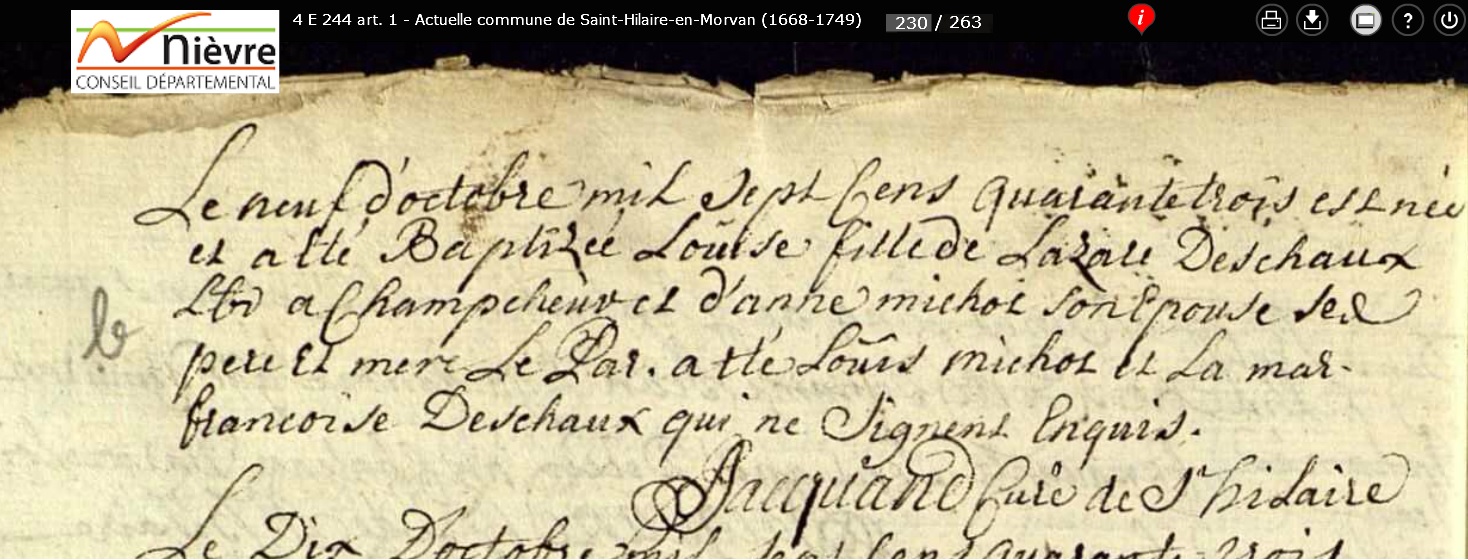 4 E 244 art. 1 - Actuelle commune de Saint-Hilaire-en-Morvan (1668-1749) 230 / 263
Nièvre
CONSEIL DÉPARTEMENTAL
Le neuf d'octobre mil sept Cens quarante trois est née
et a été Baptizée Louise fille de Lazare Deschaux
Lbr a Champcheur et d'anne michot son Epouse ses
pere Et mere Le Par. a été Louis michot et La mar.
francoise Deschaux qui ne Signent Enquis.
Jacquand Curé de St hilaire
Le Dix D'octobre mil sept Cens quarante trois
b